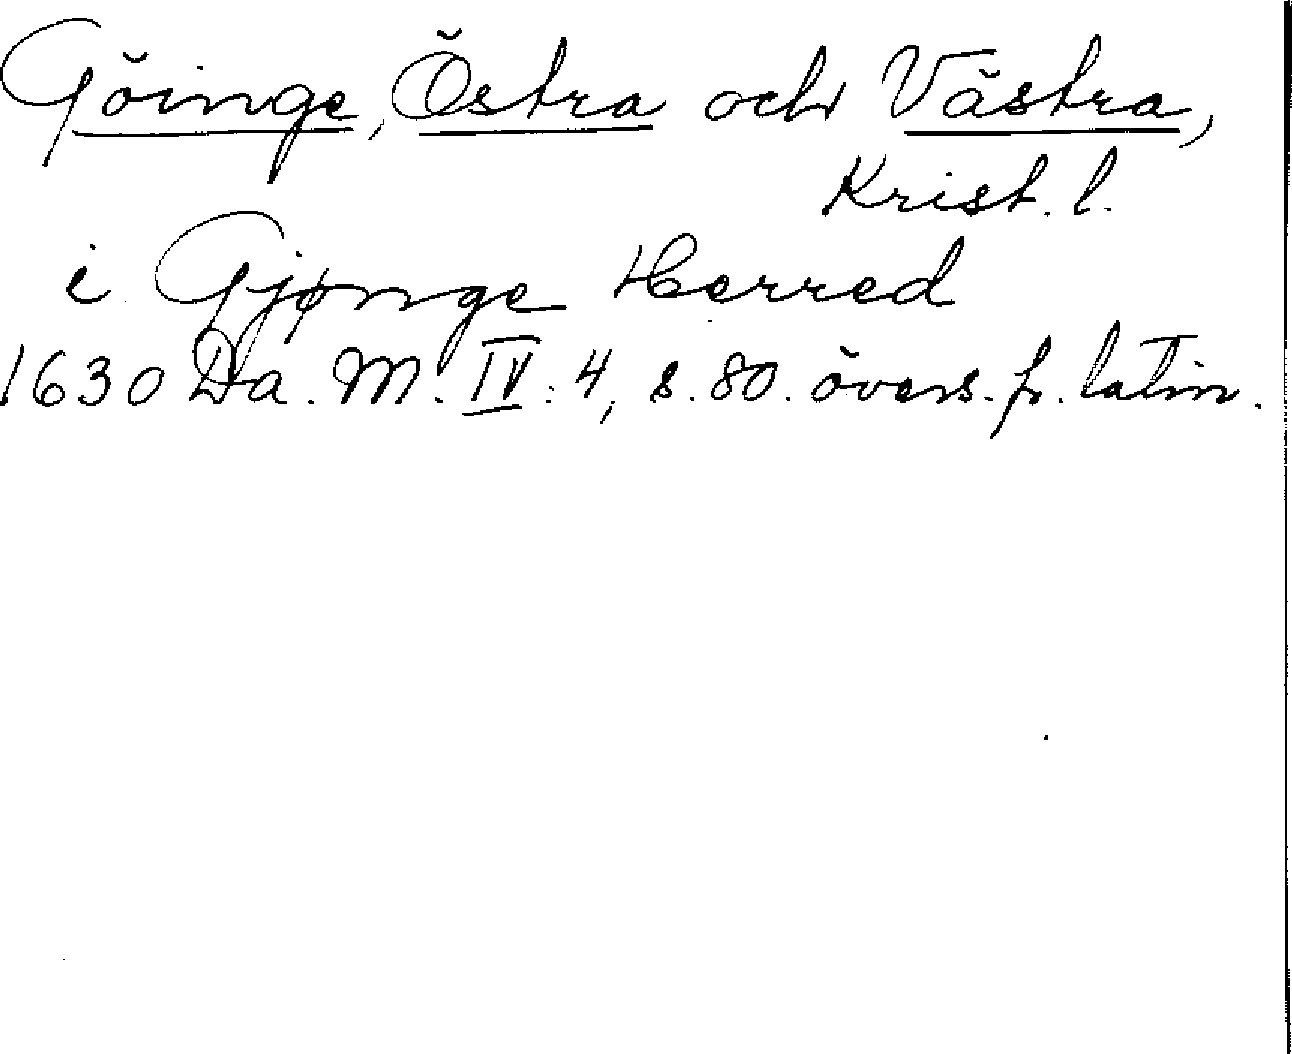 Göinge, Östra och Västra,
Krist. l.
i Gjønge Herred
1630 Da. M. IV: 4, s. 80. övers. fr. latin.